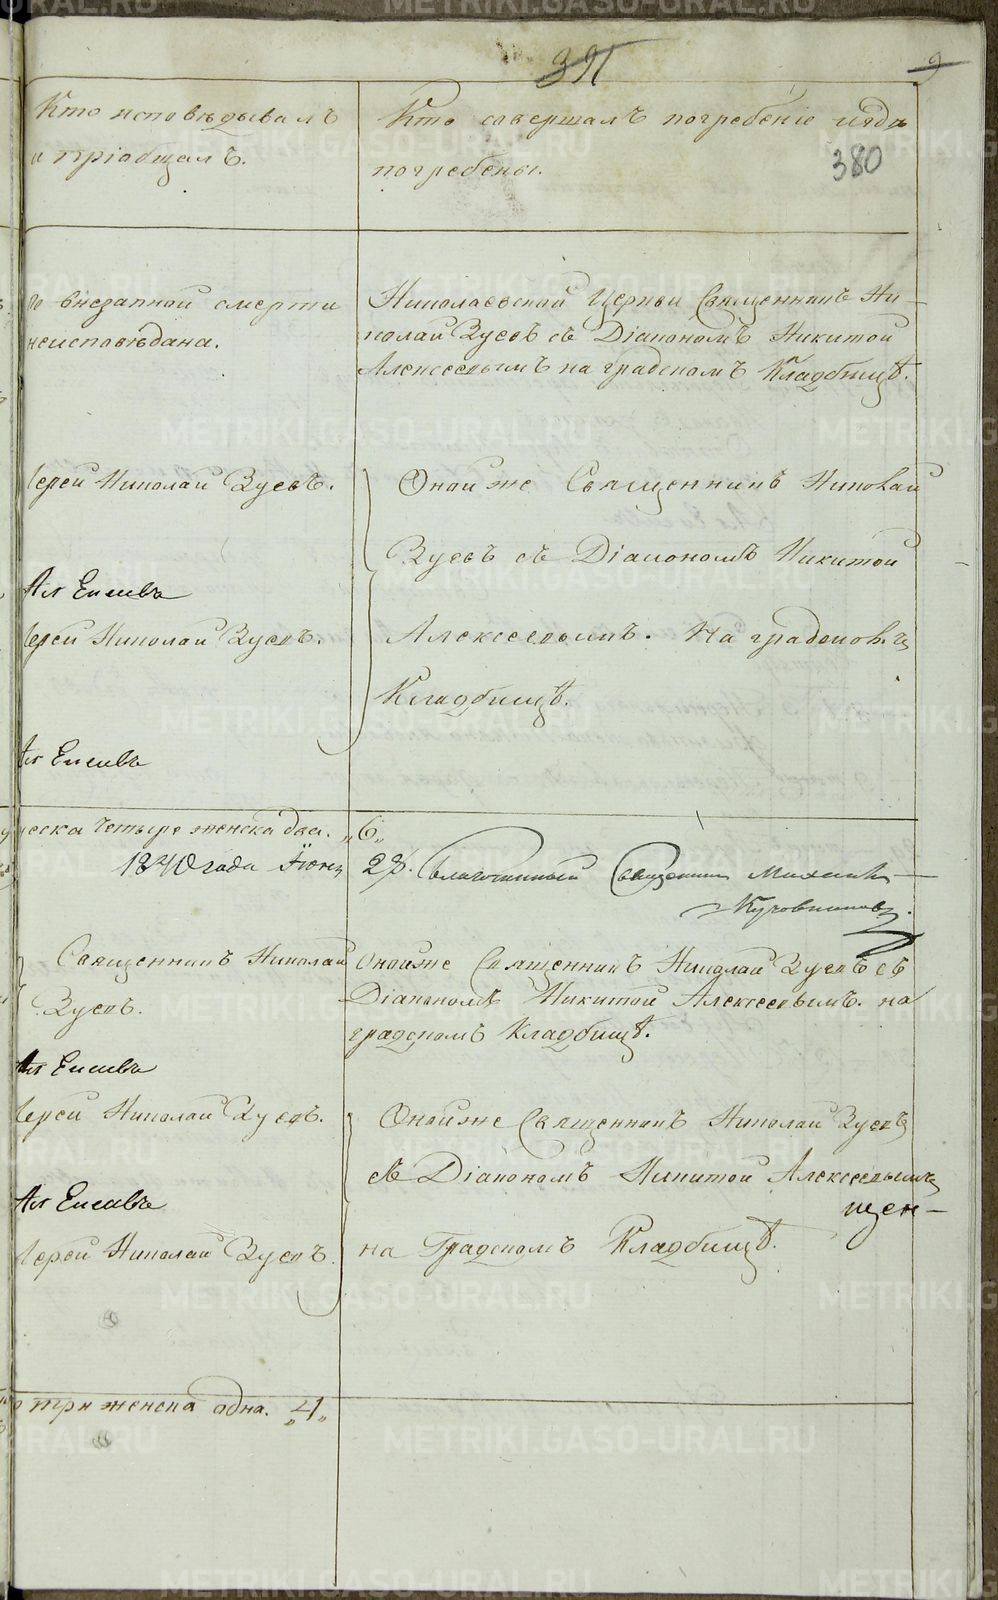 391
9
380
Кто исповѣдывалъ
и пріобщалъ.
Кто совершалъ погребеніе и гдѣ
погребены.
По внезапной смерти
неисповѣдана.
Николаевской Церкви Священникъ Ни-
колай Зуевъ съ Діакономъ Никитой
Алексеевымъ на градскомъ Кладбищѣ.
Іерей Николай Зуевъ.
Іерей Николай Зуевъ.
Онойже Священникъ Николай
Зуевъ съ Діакономъ Никитой
Алексеевымъ. На градскомъ
Кладбищѣ.
ческа четыре женска два. „6„
1840 года Іюня 28. Благочинный Священникъ Михаилъ
Священникъ Николай
Зуевъ.
Онойже Священникъ Николай Зуевъ съ
Діакономъ Никитой Алексеевымъ. на
градскомъ Кладбищѣ.
Іерей Николай Зуевъ.
Іерей Николай Зуевъ.
Онойже Священникъ Николай Зуевъ
съ Діакономъ Никитой Алексеевымъ
щен-
на Градскомъ Кладбищѣ.
три женска одна. „4„
METRIKI.GASO-URAL.RU